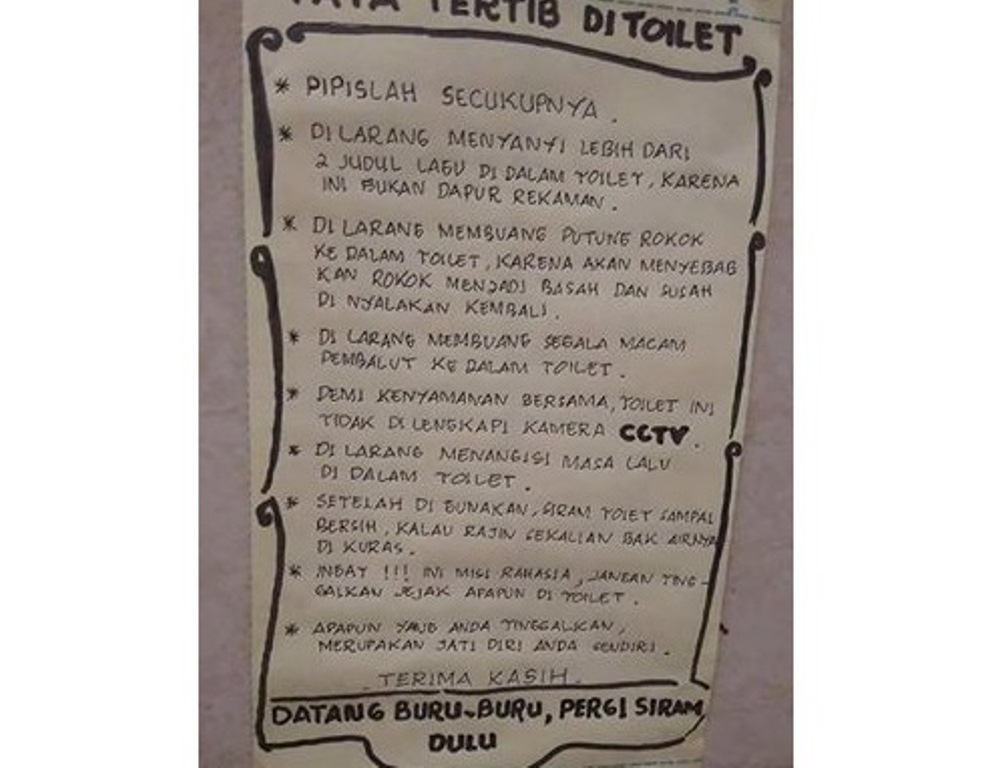 TATA TERTIB DI TOILET
* PIPISLAH SECUKUPNYA.
* DI LARANG MENYANYI LEBIH DARI
2 JUDUL LAGU DI DALAM TOILET, KARENA
INI BUKAN DAPUR REKAMAN.
* DI LARANG MEMBUANG PUTUNG ROKOK
KE DALAM TOILET, KARENA AKAN MENYEBAB
KAN ROKOK MENJADI BASAH DAN SUSAH
DI NYALAKAN KEMBALI.
* DI LARANG MEMBUANG SEGALA MACAM
PEMBALUT KE DALAM TOILET.
* DEMI KENYAMANAN BERSAMA, TOILET INI
TIDAK DI LENGKAPI KAMERA CCTV.
* DI LARANG MENANGISI MASA LALU
DI DALAM TOILET.
* SETELAH DI GUNAKAN, SIRAM TOIET SAMPAI
BERSIH, KALAU RAJIN SEKALIAN BAK AIRNYA
DI KURAS.
* INGAT !!! INI MISI RAHASIA, JANGAN TING-
GALKAN JEJAK APAPUN DI TOILET.
* APAPUN YANG ANDA TINGGALKAN,
MERUPAKAN JATI DIRI ANDA SENDIRI.
TERIMA KASIH.
DATANG BURU-BURU, PERGI SIRAM
DULU